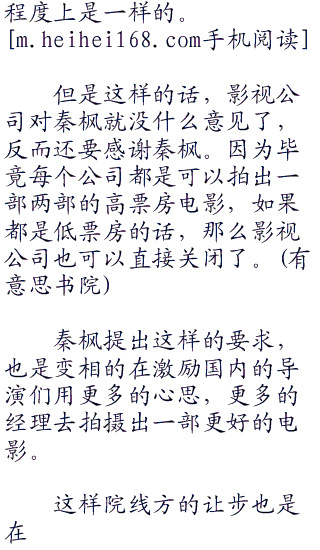 程度上是一样的。
[m.heihei168.com手机阅读]
但是这样的话，影视公
司对秦枫就没什么意见了，
反而还要感谢秦枫。因为毕
竟每个公司都是可以拍出一
部两部的高票房电影，如果
都是低票房的话，那么影视
公司也可以直接关闭了。(有
意思书院)
秦枫提出这样的要求，
也是变相的在激励国内的导
演们用更多的心思，更多的
经理去拍摄出一部更好的电
影。
这样院线方的让步也是
在